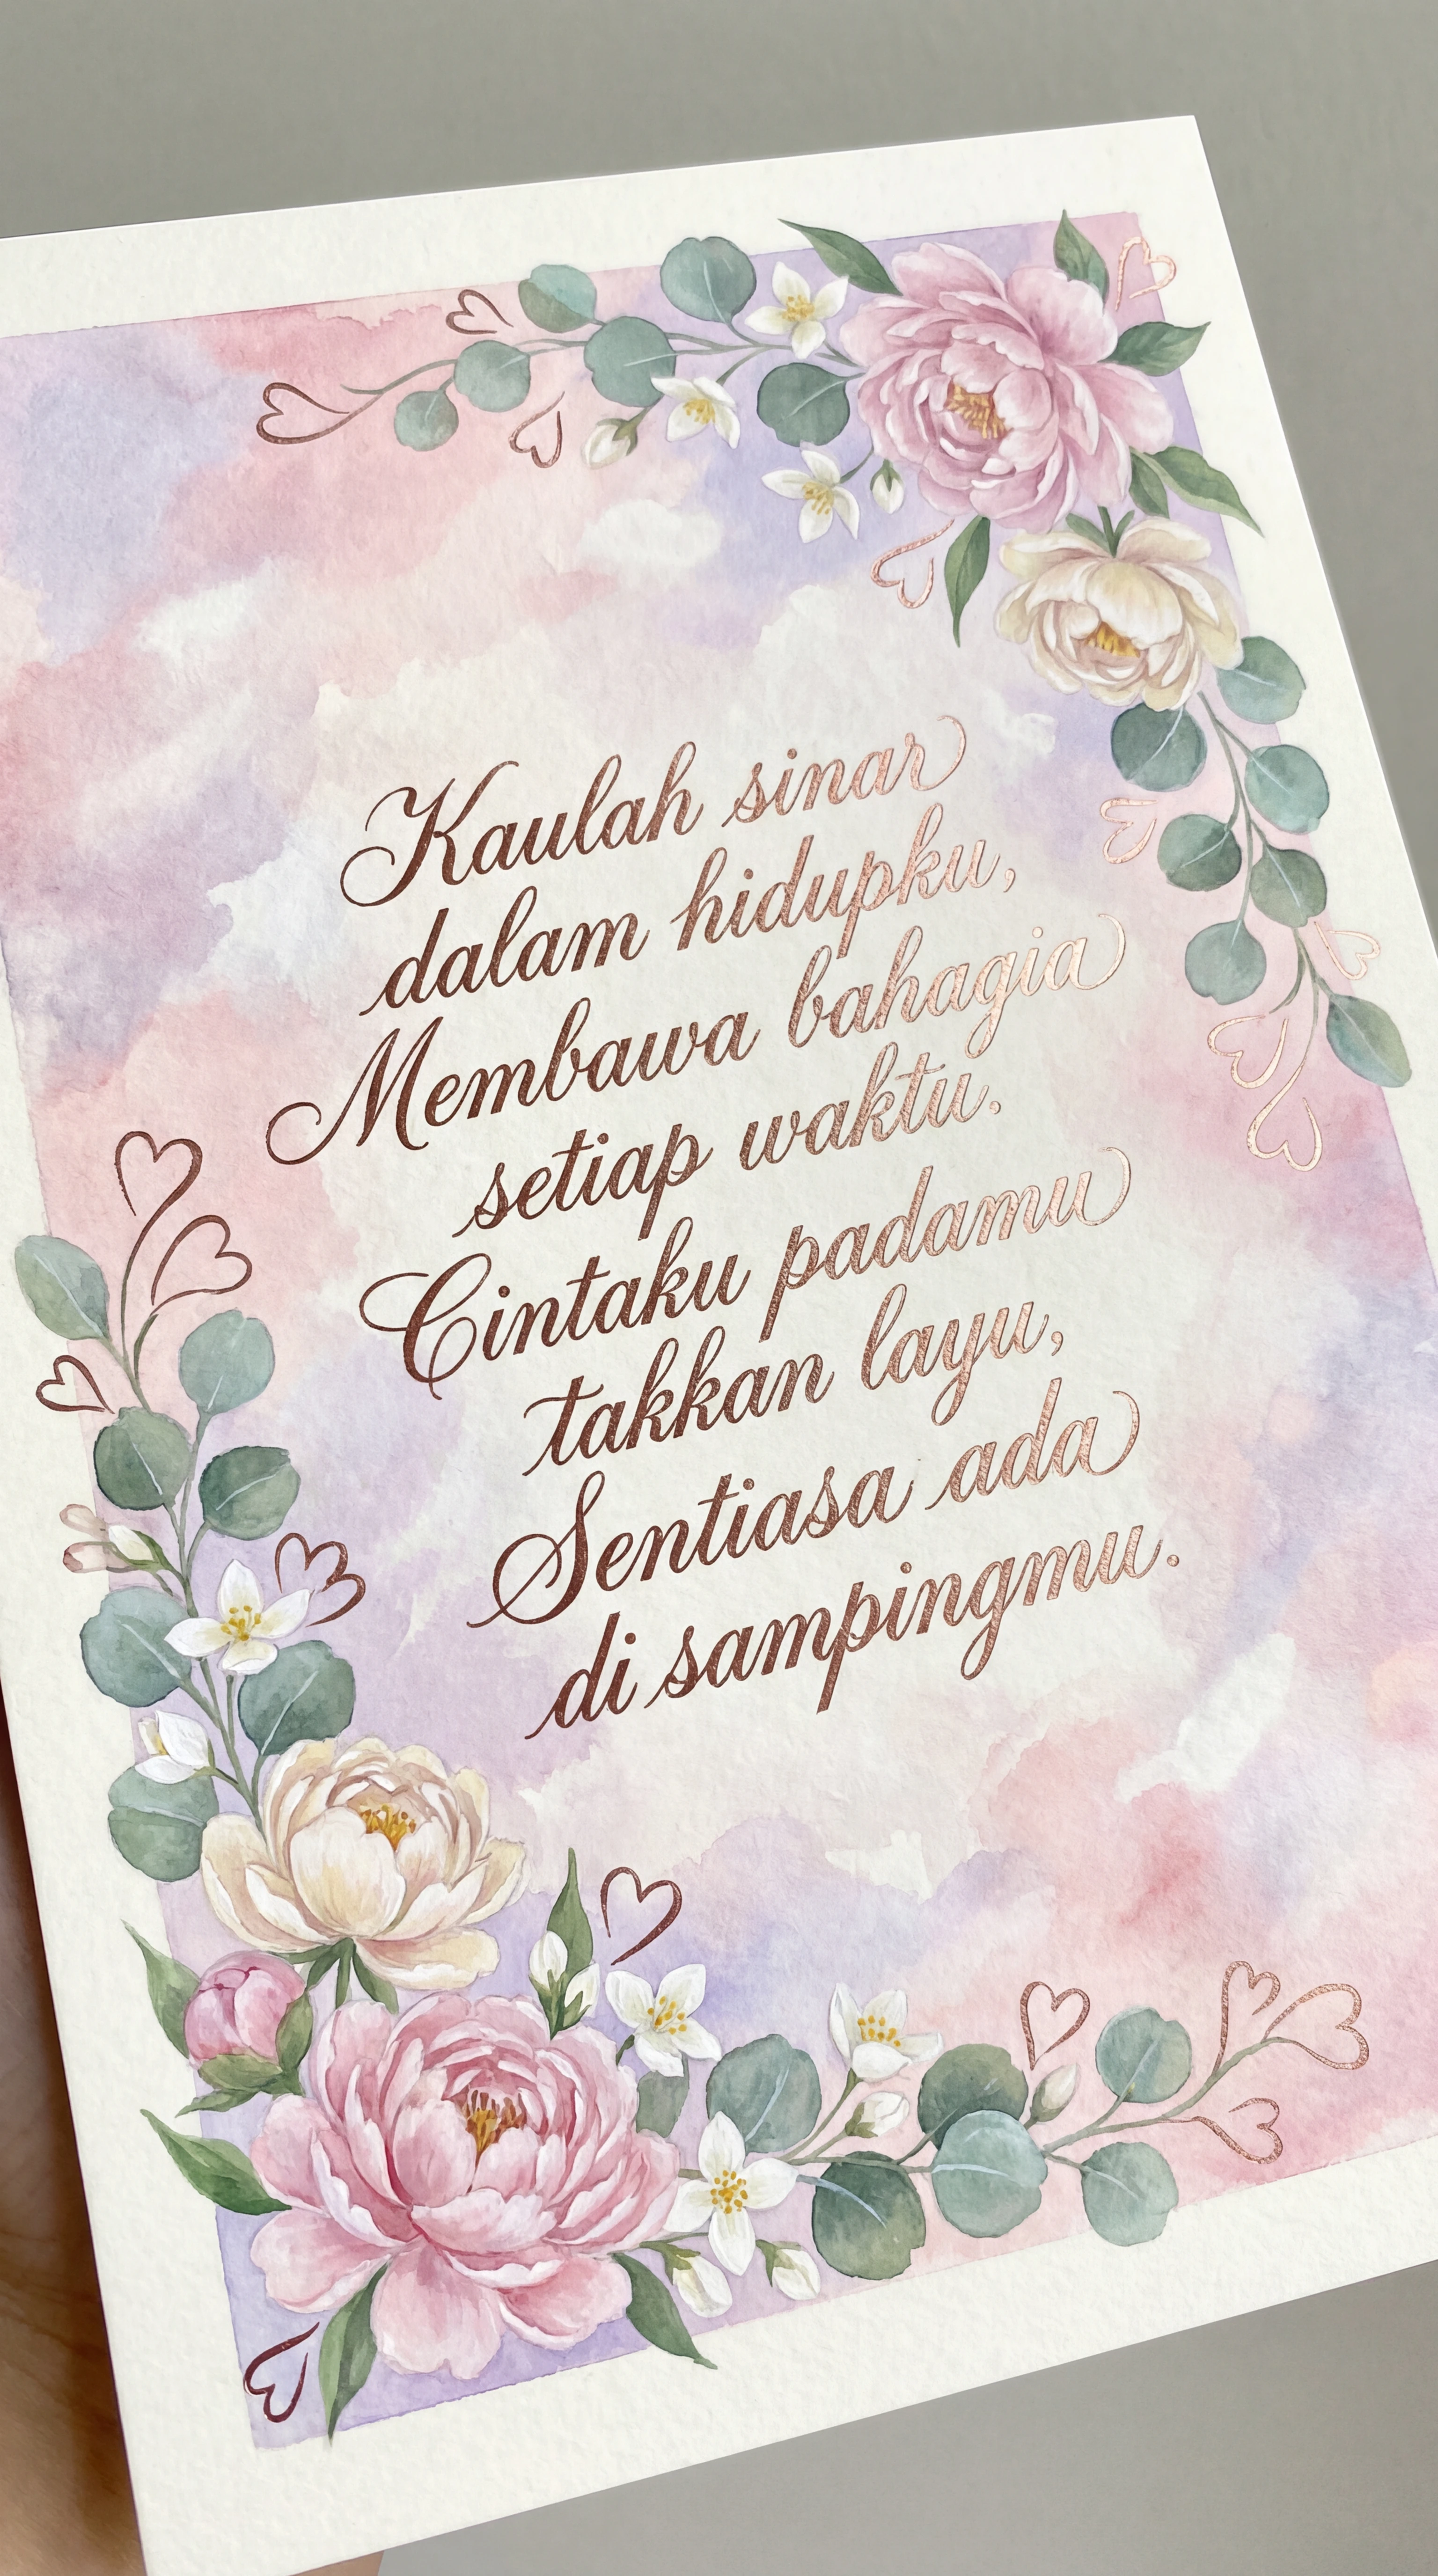 Kaulah sinar
dalam hidupku,
Membawa bahagia
setiap waktu.
Cintaku padamu
takkan layu,
Sentiasa ada
di sampingmu.